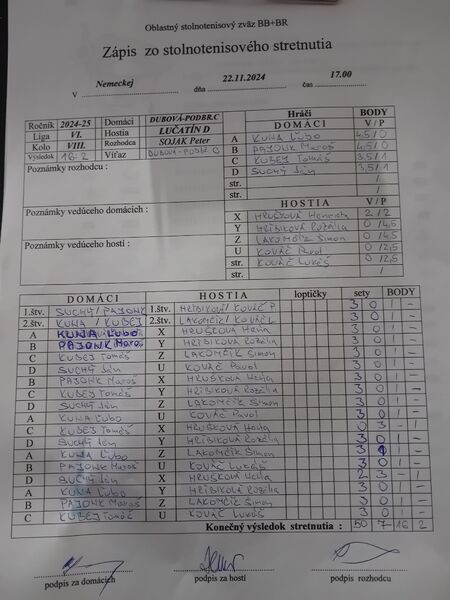 Oblastný stolnotenisový zväz BB+BR
Zápis zo stolnotenisového stretnutia
V Nemeckej dňa 22.11.2024 čas 17.00
Ročník 2024-25 Domáci DUBOVÁ-PODBR.C
Liga VI. Hostia LUČATÍN D
Kolo VIII. Rozhodca SOJAK Peter
Výsledok 16-2 Víťaz DUBOVÁ-PODBR C
Poznámky rozhodcu :
Poznámky vedúceho domácich :
Poznámky vedúceho hostí :
Hráči BODY
DOMÁCI V / P
A KUNA Ľubo 4,5/0
B PAJONK Maroš 4,5/0
C KUBEJ Tomáš 3,5/1
D SUCHÝ Ján 3,5/1
str. /
str. /
HOSTIA V / P
X HRUŠKOVÁ Henrieta 2/2
Y HRÍBIKOVÁ Rozália 0/4,5
Z LAKOMČÍK Šimon 0/4,5
U KOVÁČ Pavol 0/2,5
str. KOVÁČ Lukáš 0/2,5
str. /
DOMÁCI HOSTIA loptičky sety BODY
1.štv. SUCHÝ/PAJONK 1.štv. HRÍBIKOVÁ/KOVÁČ P 3 0 1 -
2.štv. KUNA/KUBEJ 2.štv. LAKOMČÍK/KOVÁČ L 3 0 1 -
A KUNA Ľubo X HRUŠKOVÁ Henia 3 0 1 -
B PAJONK Maroš Y HRÍBIKOVÁ Rozália 3 0 1 -
C KUBEJ Tomáš Z LAKOMČÍK Šimon 3 0 1 -
D SUCHÝ Ján U KOVÁČ Pavol 3 0 1 -
B PAJONK Maroš X HRUŠKOVÁ Henia 3 0 1 -
C KUBEJ Tomáš Y HRÍBIKOVÁ Rozália 3 0 1 -
D SUCHÝ Ján Z LAKOMČÍK Šimon 3 0 1 -
A KUNA Ľubo U KOVÁČ Pavol 3 0 1 -
C KUBEJ Tomáš X HRUŠKOVÁ Henia 0 3 - 1
D SUCHÝ Ján Y HRÍBIKOVÁ Rozália 3 0 1 -
A KUNA Ľubo Z LAKOMČÍK Šimon 3 1 -
B PAJONK Maroš U KOVÁČ Lukáš 3 0 1 -
D SUCHÝ Ján X HRUŠKOVÁ Henia 2 3 - 1
A KUNA Ľubo Y HRÍBIKOVÁ Rozália 3 0 1 -
B PAJONK Maroš Z LAKOMČÍK Šimon 3 0 1 -
C KUBEJ Tomáš U KOVÁČ Lukáš 3 0 1 -
Konečný výsledok stretnutia : 50 7 16 2
podpis za domácich podpis za hostí podpis rozhodcu